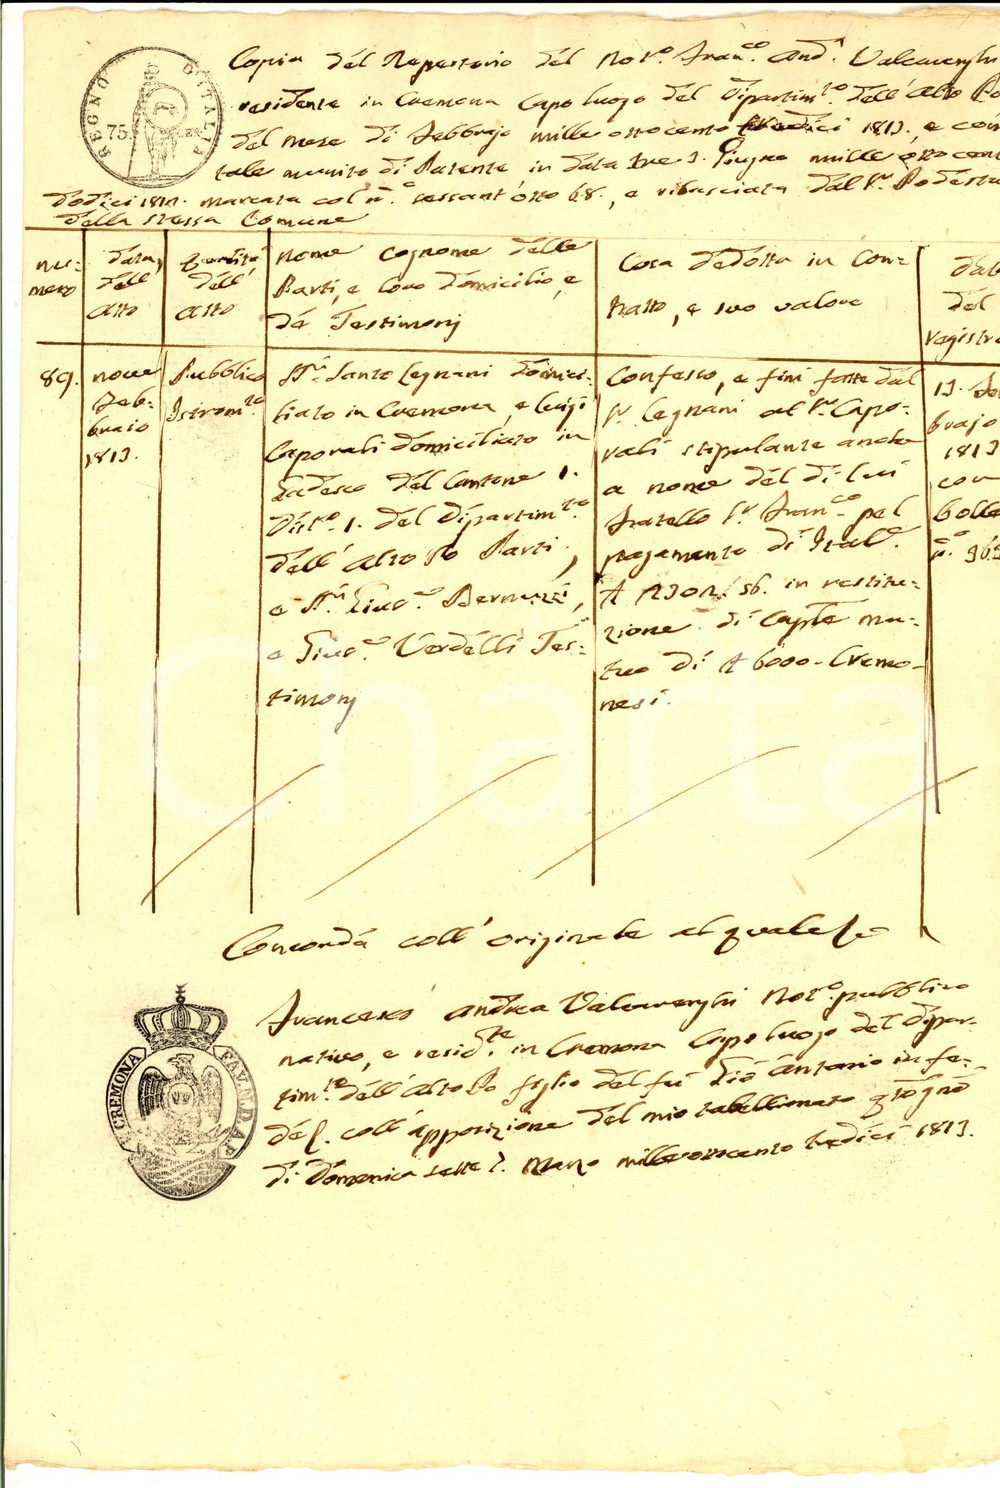 REGNO D'ITALIA
75.
Copia del Repertorio del Not.o Fran.co And.a Valcarenghi
residente in Cremona Capo luogo del Dipartim.to dell'Alto Po
del mese di Febbrajo mille ottocento tredici 1813., e come
tale munito di Patente in data tre 3. Giugno mille otto cento
dodici 1812. marcata col n.o sessant'otto 68., e rilasciata dal Sr. Podestà
della stessa Comune
nu-
mero
data
dell'
Atto
Qualità
dell'
Atto
Nome Cognome delle
Parti, e loro domicilio, e
de' Testimonj
Cosa dedotta in Con-
tratto, e suo valore
data
del
registro
89.
nove
Feb-
braio
1813.
Pubblico
Istrom.to
Sr. Santo Legnani domici-
liato in Cremona, e Luigi
Caporali domiciliato in
del Cantone 1.
Dist.o 1. del Dipartim.to
dell'Alto Po Parti,
e Sri. Gius.e Bernuzzi,
e Gius.e Verdelli Tes-
timonj
Confesso, e fini fatte dal
Sr. Legnani al Sr. Capo-
rali stipulante anche
a nome del di lui
fratello Sr. Fran.co pel
pagamento di Ital.e
56. in restitu-
zione di Capitle mu-
tuo di 6000 - Cremo-
nesi.
13. Feb
brajo
1813
con
bolla
n.o 363
Concorda coll'originale al quale
Francesco Andrea Valcarenghi Not.o pubblico
nativo, e resid.te in Cremona Capo luogo del Dipar-
tim.to dell'Alto Po figlio del fu Gio Antonio in fe-
de coll'apposizione del mio tabellionato
di Domenica sette 7. Marzo milleottocento tredici 1813.
CREMONA